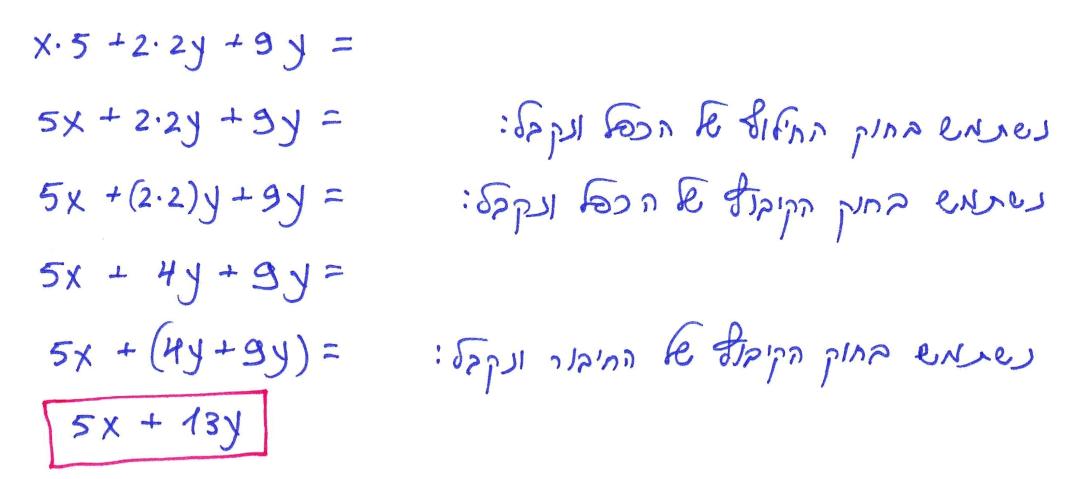 x·5 +2·2y +9y =
5x + 2·2y +9y = נשתמש בחוק החילוף של הכפל ונקבל:
5x +(2·2)y +9y = נשתמש בחוק הקיבוץ של הכפל ונקבל:
5x + 4y + 9y =
5x + (4y+9y) = נשתמש בחוק הקיבוץ של החיבור ונקבל:
5x + 13y